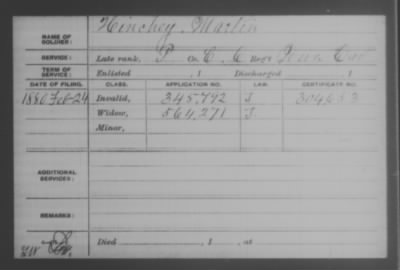 NAME OF SOLDIER: Hinchey, Martin
SERVICE: Late rank, P. Co. C, 6 Reg't Penn Cav
TERM OF SERVICE: Enlisted , 1 Discharged , 1
DATE OF FILING. CLASS. APPLICATION NO. LAW. CERTIFICATE NO.
1880 Feb 24 Invalid, 345,792 J. 304653
Widow, 564,271 J.
Minor,
ADDITIONAL SERVICES:
REMARKS:
Died , 1 , at